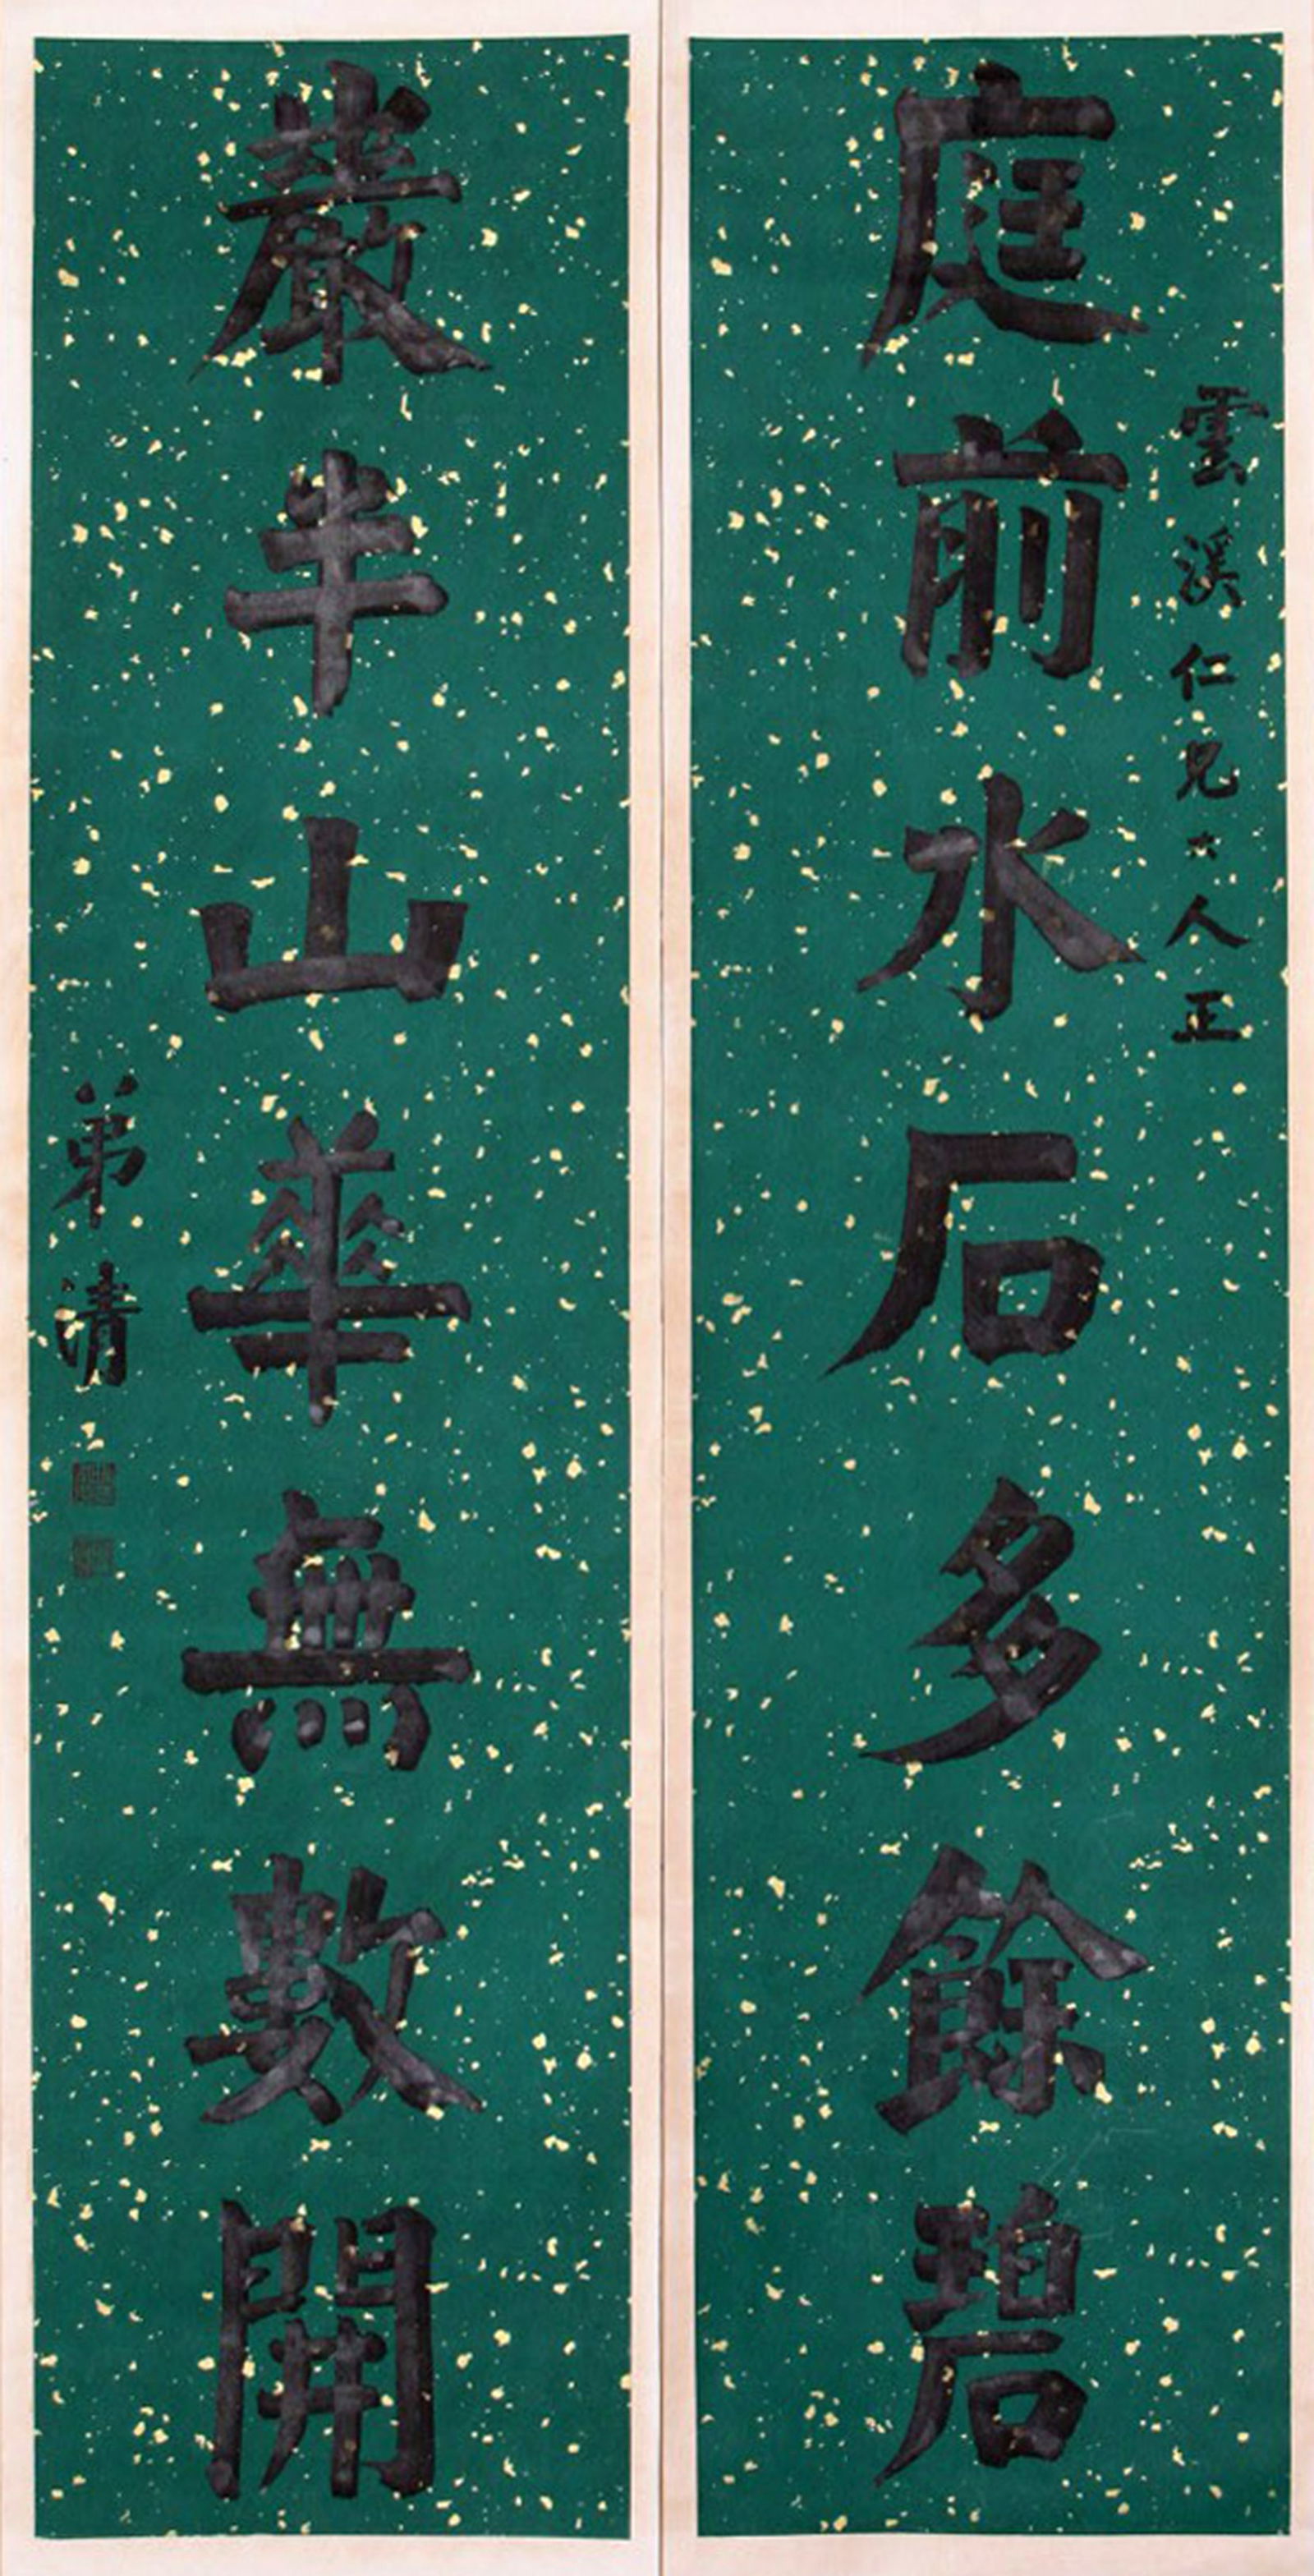 雲溪仁兄大人正
庭前水石多餘碧
巖半山華無數開
弟清